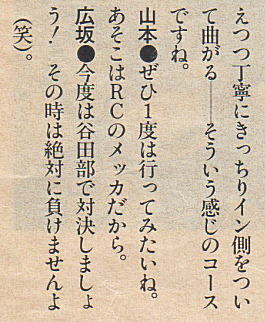 えつつ丁寧にきっちりイン側をつい
て曲がる──そういう感じのコース
ですね。
山本●ぜひ1度は行ってみたいね。
あそこはRCのメッカだから。
広坂●今度は谷田部で対決しましょ
う! その時は絶対に負けませんよ
(笑)。